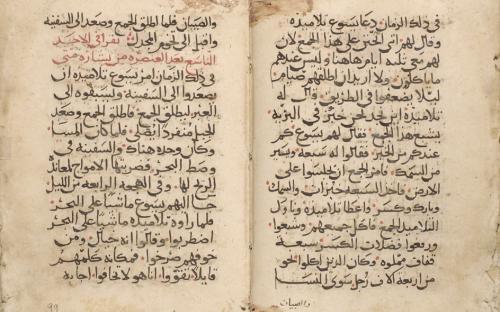 في ذلك الزمان دعا يسوع تلاميذه
وقال لهم اني اتحنن على هذا الجمع لان
لهم معي ثلثه ايام هاهنا وليس عندهم
ما ياكلون ولا اريد ان اطلقهم صيام
ليلا يضعفوا في الطريق قال له
تلاميذه اين نجد خبز في البريه
يشبع هذا الجمع فقال لهم يسوع كم
عندكم من الخبز فقالوا له سبعه ويسير
من السمك فامر الجمع ان يجلسوا على
الارض فاخذ السبعه خبزات والسمك
وبارك وكسر فاعطا تلاميذه وناول
التلاميذ الجمع فاكل جميعهم وشبعوا
ورفعوا فضلات الكسر سبعة
قفاف مملوه وكان الذين اكلوا نحو
من اربعة الاف رجل سوى النسا
والصبيان
والصبيان فلما اطلق الجمع وصعد الى السفينه
واقبل الى تخوم المجدل تقرا في الاحد
التاسع بعد العنصره من بشارة متى
في ذلك الزمان امر يسوع تلاميذه ان
يصعدوا الى السفينه ويسبقوه الى
العبر ليطلق الجمع فاطلق الجمع وصعد
الجبل منفرد ليصلي فلما كان المسا
وكان وحده هناك والسفينه في
وسط البحر فضربتها الامواج لمعاندة
الريح لها وفي الهجعه الرابعه من الليل
جا اليهم يسوع ماشيا على البحر
فلما راوه تلاميذه ماشيا على البحر
اضطربوا وقالوا انه خيال ومن
خوفهم صرخوا فكلمهم
قايلا تقووا انا هو لا تخافوا اجابه